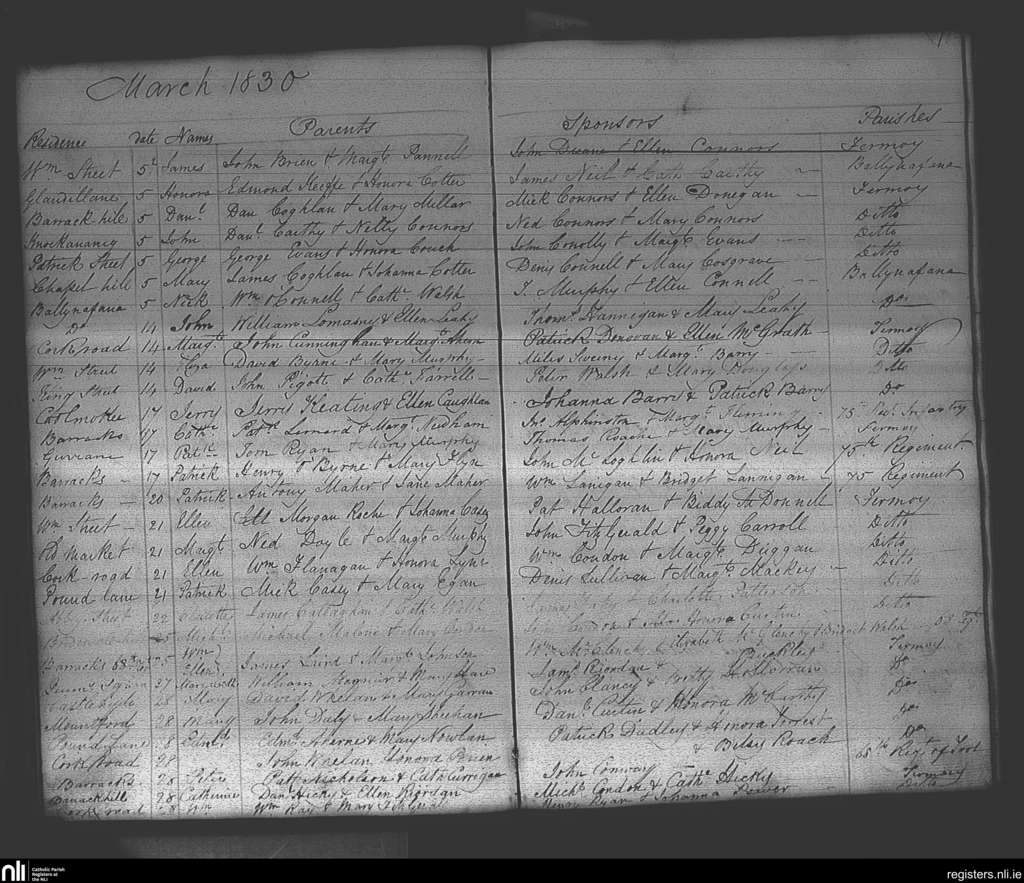 March 1830
Residence date Names Parents Sponsors Parishes
Wm Street 5 James John Brien & Margt Pannell John Duane & Ellen Connors Fermoy
5 Honora Edmond Keeffe & Honora Cotter James Neil & Cath Carthy Ballynafana
Barrack hill 5 Danl Dan Coghlan & Mary Millar Mick Connors & Ellen Donegan Fermoy
Knockananig 5 John Danl Carthy & Nelly Connors Ned Connors & Mary Connors Ditto
Patrick Street 5 George George Evans & Honora Couch John Conolly & Margt Evans Ditto
Chapel hill 5 Mary James Coghlan & Johanna Cotter Denis Connell & Mary Cosgrave Ditto
Ballynafana 5 Nick Wm Connell & Cathe Welsh T. Murphy & Ellen Connell Ballynafana
Do 14 John William Lomasny & Ellen Leahy Thoms Hannegan & Mary Leahy Do
Cork road 14 Margt John Cunningham & Margt Patrick Donovan & Ellen McGrath Fermoy
Wm Street 14 Eliza David Byrne & Mary Murphy Miles Sweiny & Margt Barry Ditto
King Street 14 David John Pigott & Cathe Farrell Peter Walsh & Mary Douglass Ditto
Coolmokee 17 Jerry Jerry Keating & Ellen Caughlan Johanna Barry & Patrick Barry Do
Barracks 17 Cathe Patk Lennard & Margt Nedham Jno Alphinston & Margt Fleming 75 Infantry
17 Patk Tom Ryan & Mary Murphy Thomas Roache & Mary Murphy Fermoy
Barracks 17 Patrick Henry Byrne & Mary Flyn John McLoghlin & Honora Neil 75th Regiment
Barracks 20 Patrick Antony Maher & Jane Maher Wm Lanigan & Bridget Lannigan 75 Regiment
Wm Street 21 Ellen Morgan Roche & Johanna Casey Pat Halloran & Biddy McDonnell Fermoy
Old market 21 Margt Ned Doyle & Margt Murphy John FitzGerald & Peggy Carroll Ditto
Cork road 21 Ellen Wm Flanagan & Honora Lyne Wm Condon & Margt Duggan Ditto
Pound lane 21 Patrick Mick Casey & Mary Egan Denis Sullivan & Margt Mackey Ditto
Street 22 Charlotte James Callaghan & Cathe Welsh James & Charlotte Patterson Ditto
25 Michl Michael Malone & Mary Condon & Honora Ditto
Barracks 68th 25 Wm Ellen James Laird & Margt Johnson Wm McClency Elizabeth McClency & Bridget Welsh 68 Regt
Queens Square 27 Margarett William & Mary Hare Saml Riordan & Buckley Fermoy
Castle Hyde 28 Mary David Whelan & Mary John Clancy & Betty Holloran Do
Mountford 28 Mary John Daly & Mary Sheehan Danl Curtin & Honora McCarthy Do
Pound Lane 28 Edmd Edmd Aherne & Mary Nowlan Patrick Dudley & Honora Forrest Do
Cork Road 28 John Whelan Honora & Betsy Roach Do
Barracks 28 Peter Patt Nicholson & Cath Corrigan John Conway 68th Regt of Foot
Barrackhill 28 Catherine Dan Hicky & Ellen Riordan Michl Condon & Cathe Hicky Fermoy
Cork road 28 Wm Wm Ray & Mary Henry Ryan & Johanna Power Ditto
nli
Catholic Parish
Registers at
the NLI
registers.nli.ie